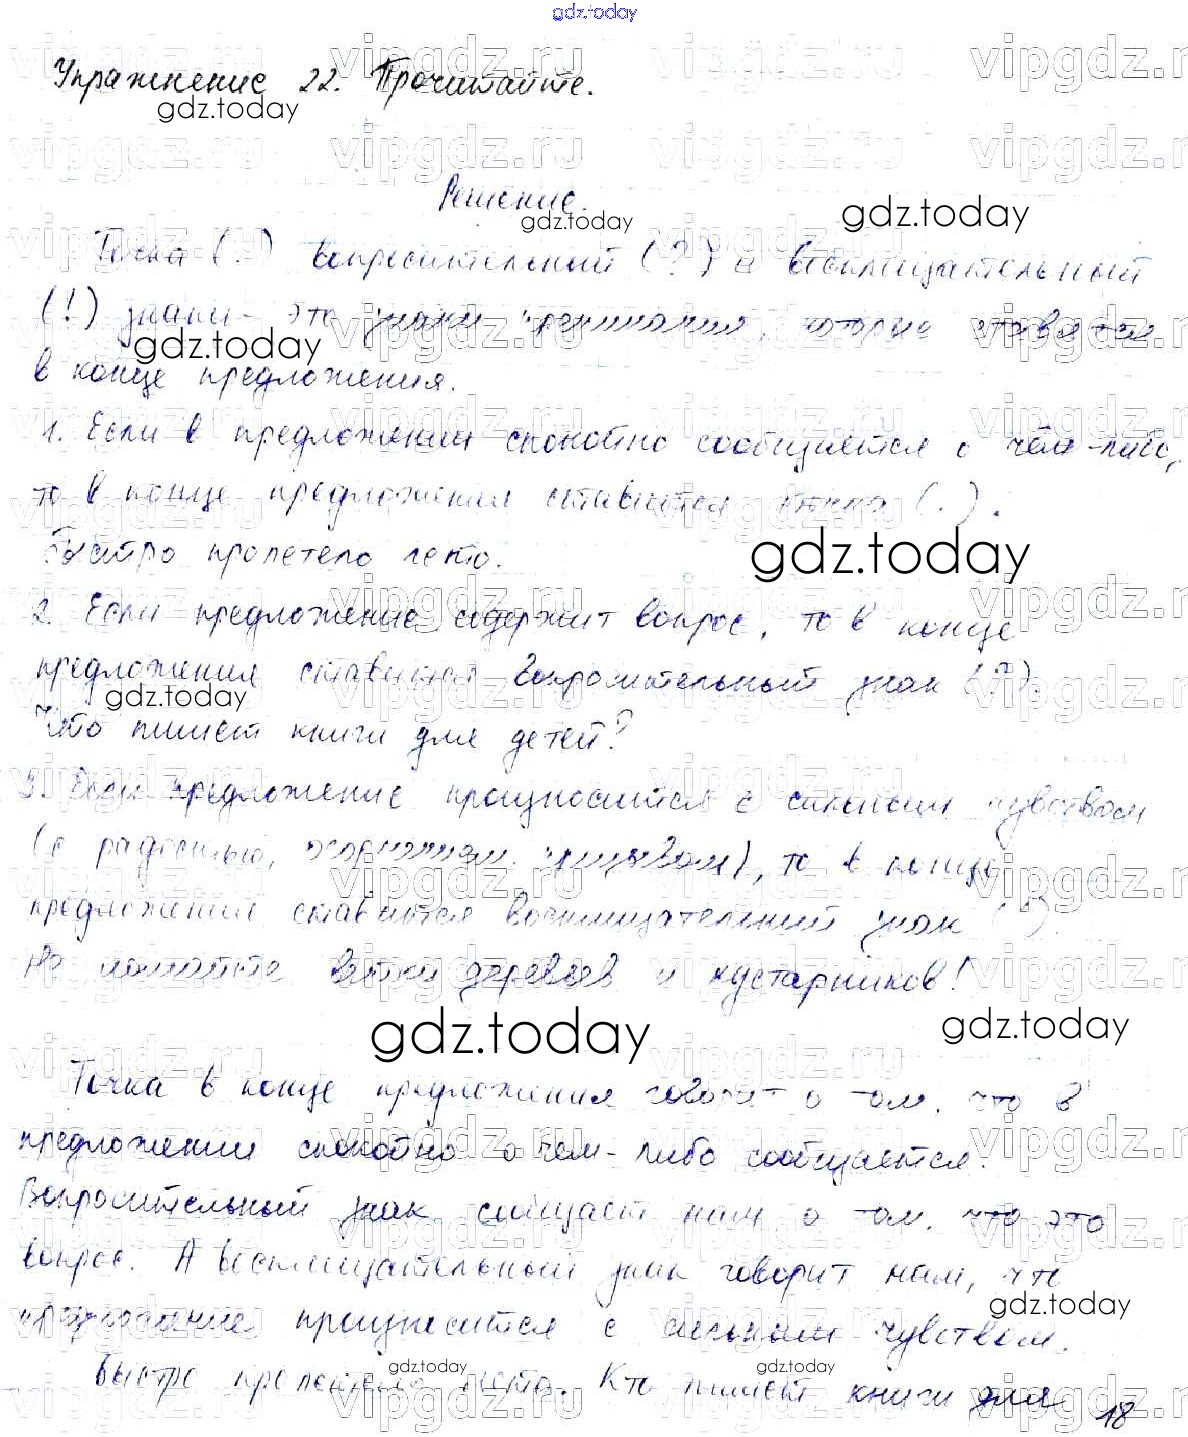 gdz.today
Упражнение 22. Прочитайте.
Решение.
Точка (.) вопросительный (?) и восклицательный
(!) знаки - это знаки препинания, которые ставятся
в конце предложения.
1. Если в предложении спокойно сообщается о чём-либо,
то в конце предложения ставится точка (.).
Быстро пролетело лето.
2. Если предложение содержит вопрос, то в конце
предложения ставится вопросительный знак (?).
Кто пишет книги для детей?
3. Если предложение произносится с сильным чувством
(с радостью, призывом), то в конце
предложения ставится восклицательный знак (!).
Не ломайте ветки деревьев и кустарников!
Точка в конце предложения говорит о том, что в
предложении спокойно о чем-либо сообщается.
Вопросительный знак сообщает нам о том, что это
вопрос. А восклицательный знак говорит нам, что
предложение произносится с сильным чувством.
Быстро пролетело лето. Кто пишет книги для
18